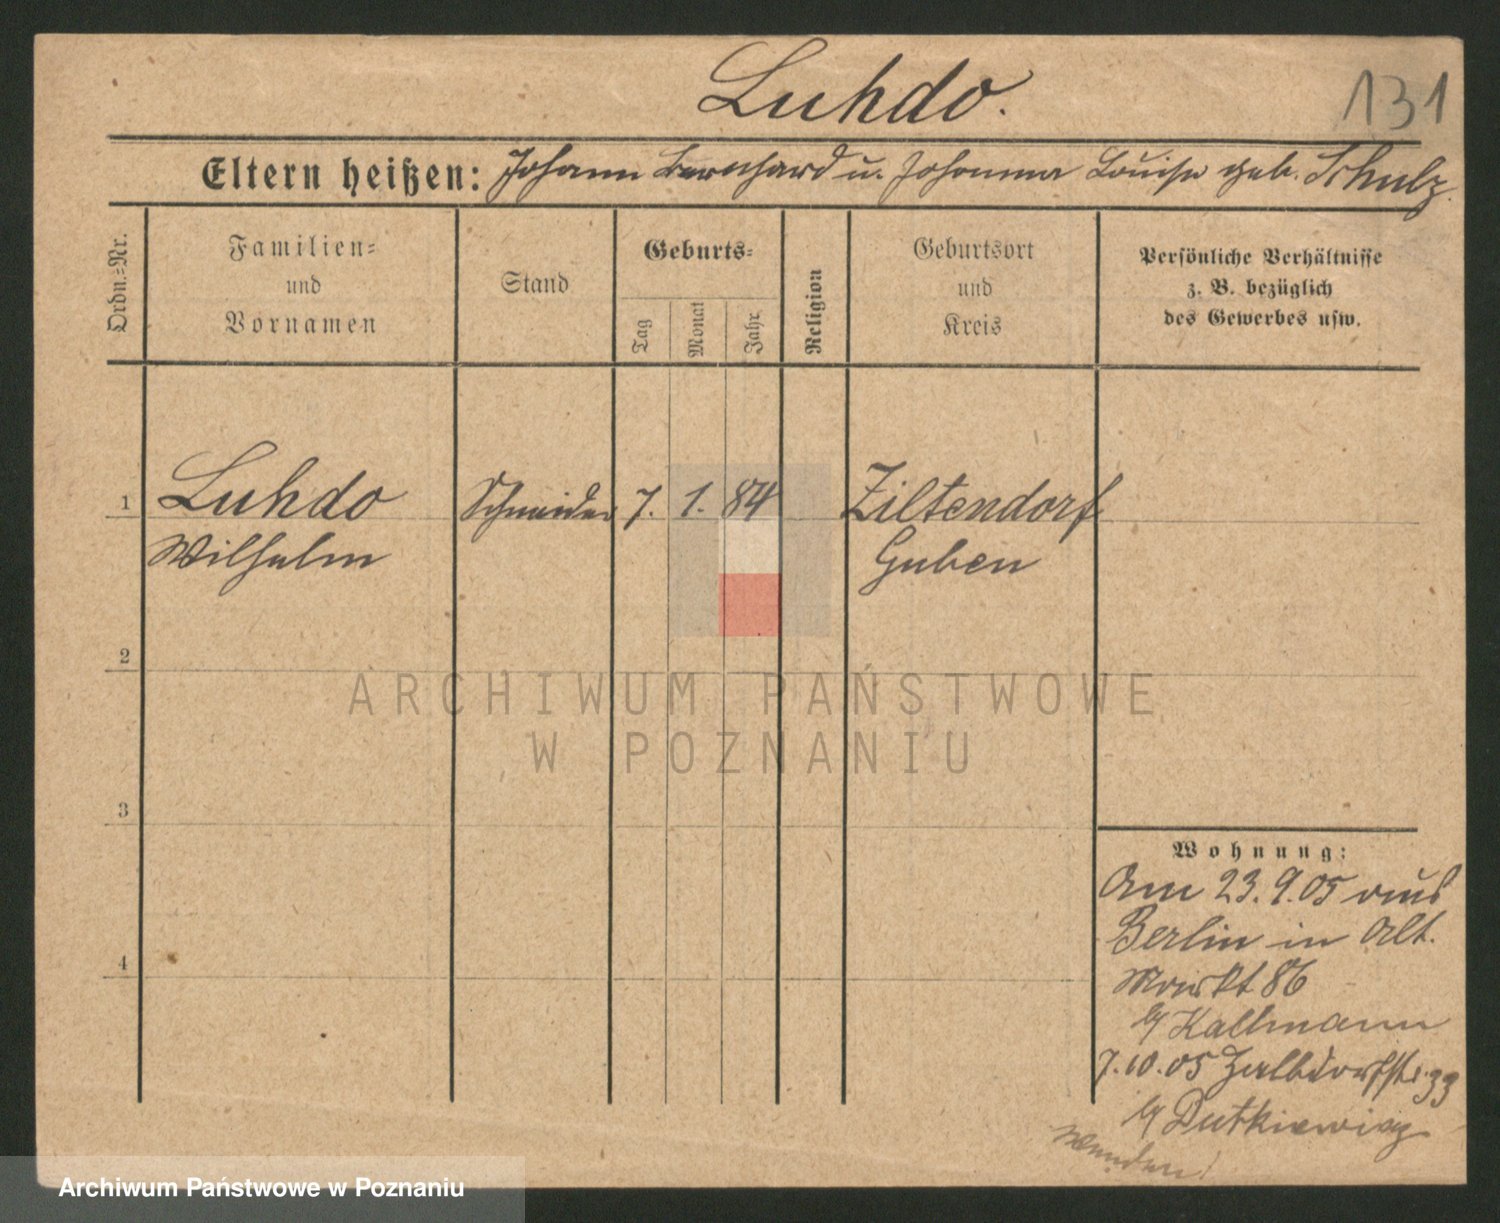 Luhdo.
131
Eltern heißen: Johann Bernhard u. Johanna Louise geb. Schulz.
Ordn.=Nr.
Familien=
und
Vornamen
Stand
Geburts=
Tag
Monat
Jahr
Religion
Geburtsort
und
Kreis
Persönliche Verhältnisse
z. B. bezüglich
des Gewerbes usw.
1 Luhdo Schneider 7. 1. 84 Ziltendorf
Wilhelm Guben
2
ARCHIWUM PAŃSTWOWE
W POZNANIU
3
Wohnung:
Am 23.9.05 aus
Berlin in Alt.
Markt 86
4
b/ Kallmann
7.10.05 Halbdorfstr. 33
b/ Dutkiewicz
wenden!
Archiwum Państwowe w Poznaniu